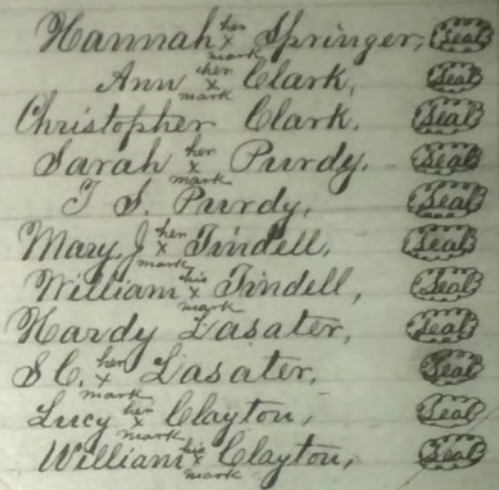 Hannah her x mark Springer, Seal
Ann her x mark Clark, Seal
Christopher Clark. Seal
Sarah her x mark Purdy. Seal
T S. Purdy, Seal
Mary. J her x mark Tindell, Seal
William his x mark Tindell, Seal
Hardy Lasater, Seal
S C. her x mark Lasater, Seal
Lucy her x mark Clayton, Seal
William his x mark Clayton, Seal